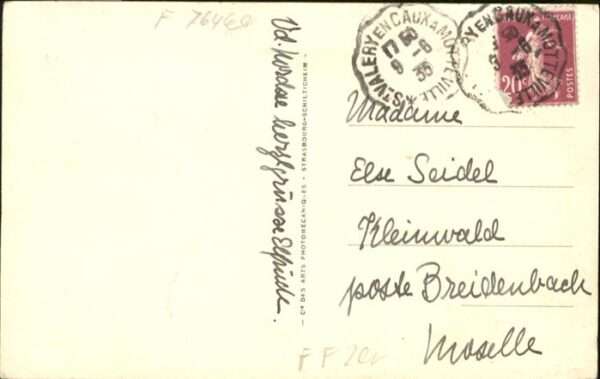 F 7646
Vd. hordse herzl. grüsse Elfriede.
— Cie DES ARTS PHOTOMÉCANIQUES - STRASBOURG-SCHILTIGHEIM -
ST VALERY EN CAUX A MOTTEVILLE
17 6
35
RY EN CAUX A MOTTEVILLE
6
35
20c
POSTES
Madame
Else Seidel
Kleinwald
poste Breidenbach
Moselle
F F